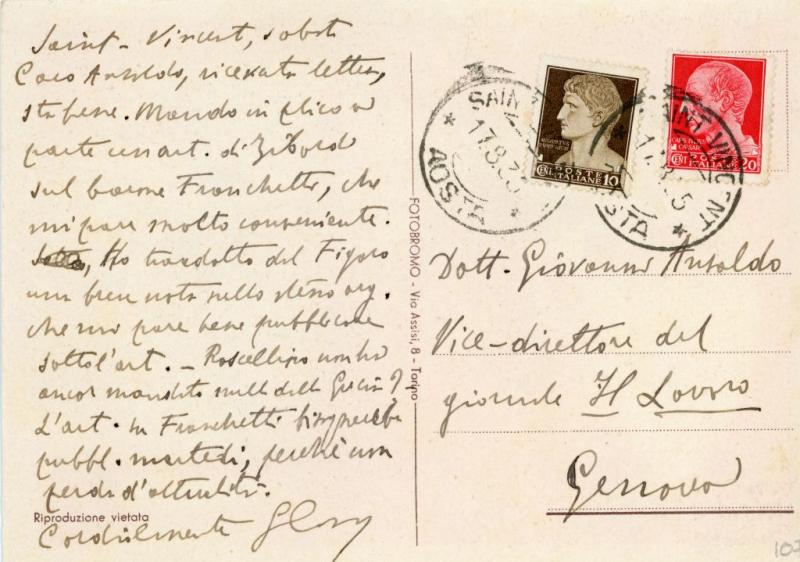 Saint-Vincent, sabato
Caro Ansaldo, ricevuta lettera,
sta bene. Mando in plico a
parte un art. di Zibordi
sul barone Franchetti, che
mi pare molto conveniente.
Ho tradotto dal Figaro
una breve nota sullo stesso arg.
che mi pare bene pubblicare
sotto l'art. — Roscellino non ha
ancor mandato nulla dalla Grecia?
L'art. su Franchetti bisognerebbe
pubbl. martedì, perché non
perda d'attualità.
Cordialmente
Riproduzione vietata
FOTOBROMO - Via Assisi, 8 - Torino
SAINT VINCENT
17.8.35
AOSTA
AUGUSTVS
POSTE ITALIANE
CENT. 10
SAINT VINCENT
17.8.35
AOSTA
CAESAR
POSTE ITALIANE
CENT. 20
Dott. Giovanni Ansaldo
Vice-direttore del
giornale Il Lavoro
Genova
107